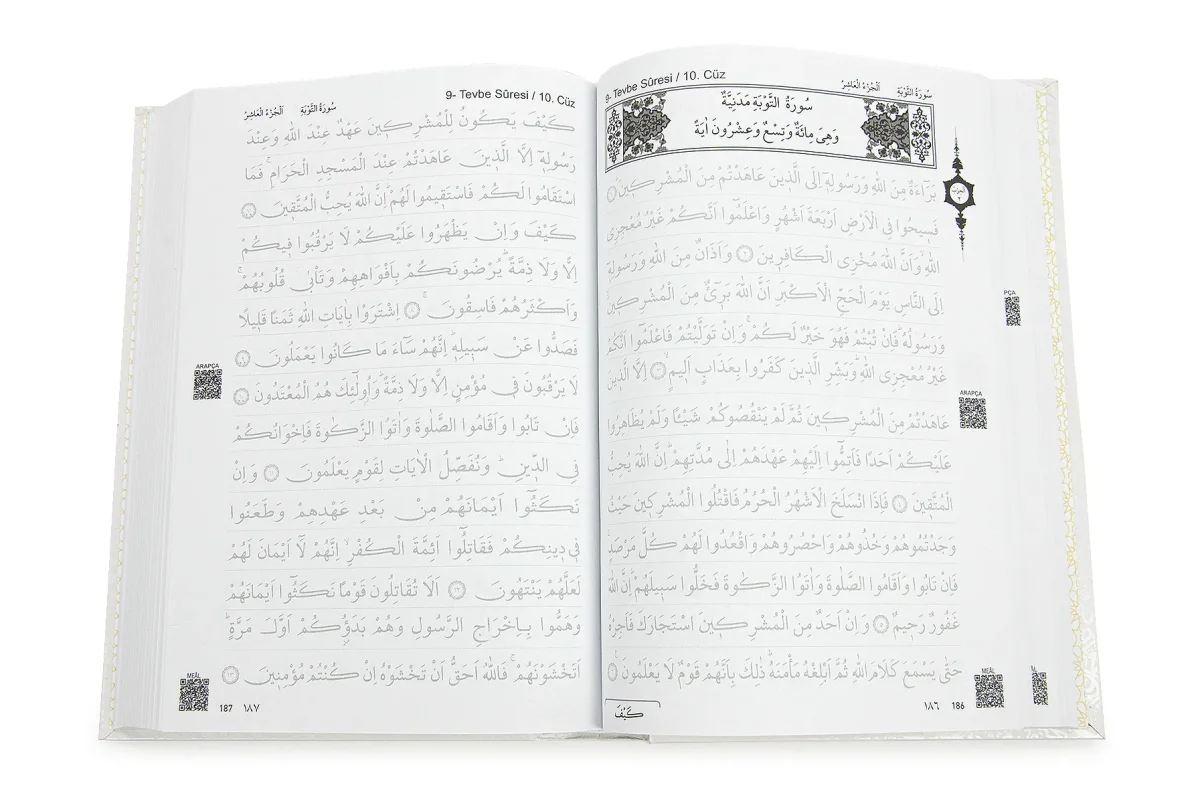 9- Tevbe Sûresi / 10. Cüz
اَلْجُزْءُ الْعَاشِرُ
سُورَةُ التَّوْبَةِ
سُورَةُ التَّوْبَةِ مَدَنِيَّةٌ
وَهِىَ مِائَةٌ وَتِسْعٌ وَعِشْرُونَ اٰيَةً
بَرَٓاءَةٌ مِنَ اللّٰهِ وَرَسُولِه۪ٓ اِلَى الَّذ۪ينَ عَاهَدْتُمْ مِنَ الْمُشْرِك۪ينَ ١
فَس۪يحُوا فِى الْاَرْضِ اَرْبَعَةَ اَشْهُرٍ وَاعْلَمُٓوا اَنَّكُمْ غَيْرُ مُعْجِزِى
اللّٰهِۙ وَاَنَّ اللّٰهَ مُخْزِى الْكَافِر۪ينَ ٢ وَاَذَانٌ مِنَ اللّٰهِ وَرَسُولِه۪ٓ
اِلَى النَّاسِ يَوْمَ الْحَجِّ الْاَكْبَرِ اَنَّ اللّٰهَ بَر۪ٓىءٌ مِنَ الْمُشْرِك۪ينَ
وَرَسُولُهُۜ فَاِنْ تُبْتُمْ فَهُوَ خَيْرٌ لَكُمْۚ وَاِنْ تَوَلَّيْتُمْ فَاعْلَمُٓوا اَنَّكُمْ
غَيْرُ مُعْجِزِى اللّٰهِۜ وَبَشِّرِ الَّذ۪ينَ كَفَرُوا بِعَذَابٍ اَل۪يمٍۙ ٣ اِلَّا الَّذ۪ينَ
عَاهَدْتُمْ مِنَ الْمُشْرِك۪ينَ ثُمَّ لَمْ يَنْقُصُوكُمْ شَيْـًٔا وَلَمْ يُظَاهِرُوا
عَلَيْكُمْ اَحَدًا فَاَتِمُّٓوا اِلَيْهِمْ عَهْدَهُمْ اِلٰى مُدَّتِهِمْۜ اِنَّ اللّٰهَ يُحِبُّ
الْمُتَّق۪ينَ ٤ فَاِذَا انْسَلَخَ الْاَشْهُرُ الْحُرُمُ فَاقْتُلُوا الْمُشْرِك۪ينَ حَيْثُ
وَجَدْتُمُوهُمْ وَخُذُوهُمْ وَاحْصُرُوهُمْ وَاقْعُدُوا لَهُمْ كُلَّ مَرْصَدٍۚ
فَاِنْ تَابُوا وَاَقَامُوا الصَّلٰوةَ وَاٰتَوُا الزَّكٰوةَ فَخَلُّوا سَب۪يلَهُمْۜ اِنَّ اللّٰهَ
غَفُورٌ رَح۪يمٌ ٥ وَاِنْ اَحَدٌ مِنَ الْمُشْرِك۪ينَ اسْتَجَارَكَ فَاَجِرْهُ
حَتّٰى يَسْمَعَ كَلَامَ اللّٰهِ ثُمَّ اَبْلِغْهُ مَأْمَنَهُۜ ذٰلِكَ بِاَنَّهُمْ قَوْمٌ لَا يَعْلَمُونَ ٦
كَيْفَ
PÇA
ARAPÇA
MEÂL
١٨٦ 186
9- Tevbe Sûresi / 10. Cüz
سُورَةُ التَّوْبَةِ
اَلْجُزْءُ الْعَاشِرُ
كَيْفَ يَكُونُ لِلْمُشْرِك۪ينَ عَهْدٌ عِنْدَ اللّٰهِ وَعِنْدَ
رَسُولِه۪ٓ اِلَّا الَّذ۪ينَ عَاهَدْتُمْ عِنْدَ الْمَسْجِدِ الْحَرَامِۚ فَمَا
اسْتَقَامُوا لَكُمْ فَاسْتَق۪يمُوا لَهُمْۜ اِنَّ اللّٰهَ يُحِبُّ الْمُتَّق۪ينَ ٧
كَيْفَ وَاِنْ يَظْهَرُوا عَلَيْكُمْ لَا يَرْقُبُوا ف۪يكُمْ
اِلًّا وَلَا ذِمَّةًۜ يُرْضُونَكُمْ بِاَفْوَاهِهِمْ وَتَأْبٰى قُلُوبُهُمْۚ
وَاَكْثَرُهُمْ فَاسِقُونَۚ ٨ اِشْتَرَوْا بِاٰيَاتِ اللّٰهِ ثَمَنًا قَل۪يلًا
فَصَدُّوا عَنْ سَب۪يلِه۪ۜ اِنَّهُمْ سَٓاءَ مَا كَانُوا يَعْمَلُونَ ٩
لَا يَرْقُبُونَ ف۪ى مُؤْمِنٍ اِلًّا وَلَا ذِمَّةًۜ وَاُو۬لٰٓئِكَ هُمُ الْمُعْتَدُونَ ١٠
فَاِنْ تَابُوا وَاَقَامُوا الصَّلٰوةَ وَاٰتَوُا الزَّكٰوةَ فَاِخْوَانُكُمْ
فِى الدّ۪ينِۜ وَنُفَصِّلُ الْاٰيَاتِ لِقَوْمٍ يَعْلَمُونَ ١١ وَاِنْ
نَكَثُٓوا اَيْمَانَهُمْ مِنْ بَعْدِ عَهْدِهِمْ وَطَعَنُوا
ف۪ى د۪ينِكُمْ فَقَاتِلُٓوا اَئِمَّةَ الْكُفْرِۙ اِنَّهُمْ لَٓا اَيْمَانَ لَهُمْ
لَعَلَّهُمْ يَنْتَهُونَ ١٢ اَلَا تُقَاتِلُونَ قَوْمًا نَكَثُٓوا اَيْمَانَهُمْ
وَهَمُّوا بِاِخْرَاجِ الرَّسُولِ وَهُمْ بَدَؤُ۫كُمْ اَوَّلَ مَرَّةٍۜ
اَتَخْشَوْنَهُمْۚ فَاللّٰهُ اَحَقُّ اَنْ تَخْشَوْهُ اِنْ كُنْتُمْ مُؤْمِن۪ينَ ١٣
ARAPÇA
MEÂL
187 ١٨٧